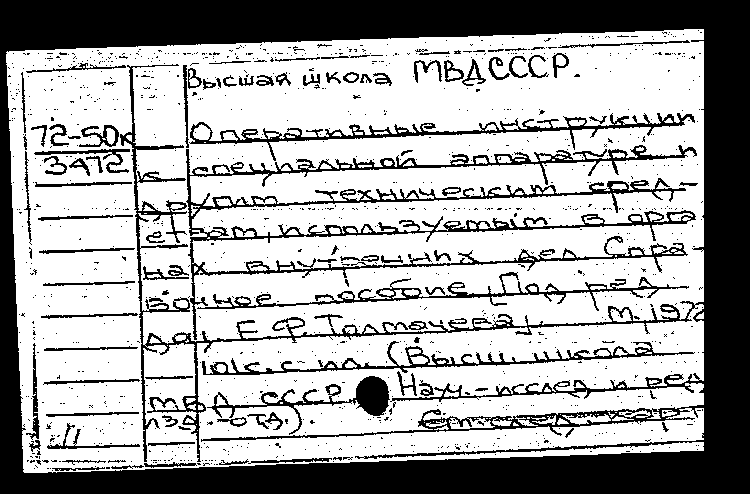 Высшая школа МВД СССР.
72-50к
3472
Оперативные инструкции
к специальной аппаратуре и
другим техническим сред-
ствам, используемым в орга
нах внутренних дел Спра-
вочное пособие [Под ред
доц Е Ф. Толмачева]. М., 1972
101 с. с ил. (Высш. школа
МВД СССР Науч.-исслед и ред
изд.-отд.). См след. карт